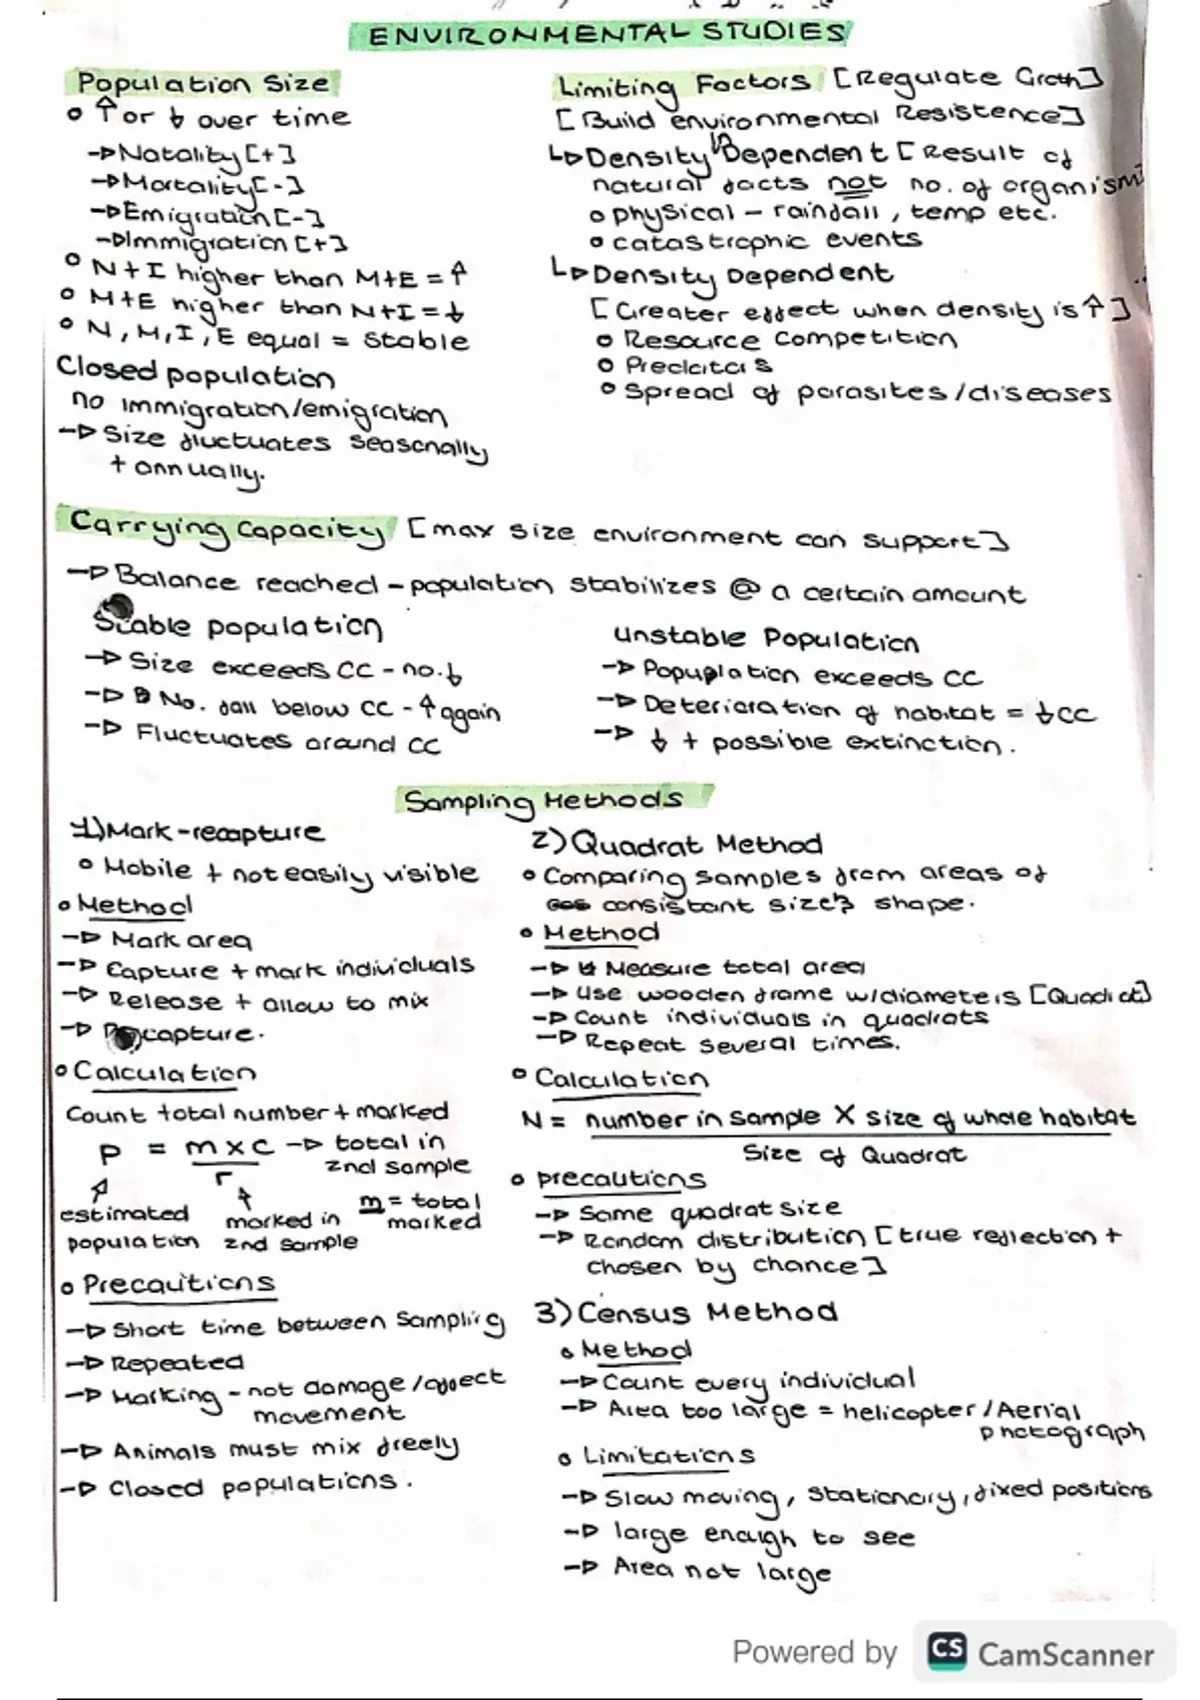 ENVIRONMENTAL STUDIES
Population Size
↑ or ↓ over time
→ Natality [+]
→ Mortality [-]
→ Emigration [-]
→ Immigration [+]
N + I higher than M+E = ↑
M+E higher than N+I = ↓
N, M, I, E equal = Stable
Closed population
no immigration/emigration
→ Size fluctuates seasonally
+ annually.
Limiting Factors [Regulate Groth]
[Build environmental Resistence]
↳ Density inDependent [Result of
natural facts not no. of organism]
physical - rainfall, temp etc.
catastrophic events
↳ Density Dependent
[Greater effect when density is ↑]
Resource competition
Predators
Spread of parasites/diseases
Carrying Capacity [max size environment can support]
→ Balance reached - population stabilizes @ a certain amount
Stable population
→ Size exceeds CC - no. ↓
→ No. fall below CC - ↑ again
→ Fluctuates around CC
Unstable Population
→ Popuplation exceeds CC
→ Deterioration of habitat = ↓ CC
→ ↓ + possible extinction.
Sampling Methods
1) Mark-recapture
Mobile + not easily visible
Method
→ Mark area
→ Capture + mark individuals
→ Release + allow to mix
→ Recapture.
Calculation
Count total number + marked
P = m x c → total in
r 2nd sample
estimated marked in m = total
population 2nd sample marked
Precautions
→ Short time between Sampling
→ Repeated
→ Marking - not damage/affect
movement
→ Animals must mix freely
→ Closed populations.
2) Quadrat Method
Comparing samples from areas of
consistant size & shape.
Method
→ Measure total area
→ Use wooden frame w/diameters [Quadrat]
→ Count individuals in quadrats
→ Repeat several times.
Calculation
N = number in sample X size of whole habitat
Size of Quadrat
precautions
→ Same quadrat size
→ Random distribution [true reflection +
chosen by chance]
3) Census Method
Method
→ Count every individual
→ Area too large = helicopter/Aerial
photograph
Limitations
→ Slow moving, stationary, fixed positions
→ large enough to see
→ Area not large
Powered by CS CamScanner